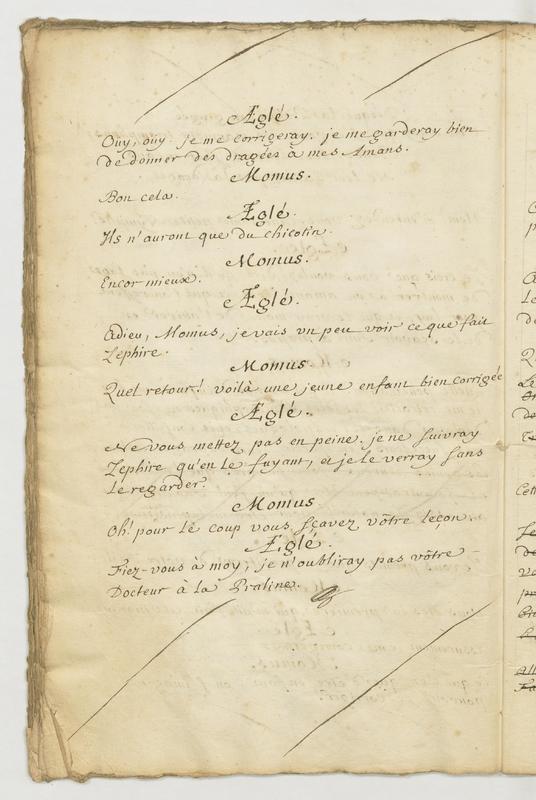 Æglé.
Ouy, ouy. je me corrigeray. je me garderay bien
de donner des dragées à mes Amans.
Momus.
Bon cela.
Æglé.
Ils n'auront que du chicotin.
Momus.
Encor mieux.
Æglé.
Adieu, Momus, je vais un peu voir ce que fait
Zephire.
Momus
Quel retour! voilà une jeune enfant bien corrigée
Æglé.
Ne vous mettez pas en peine. je ne suivray
Zephire qu'en le fuyant, et je le verray sans
le regarder.
Momus
Oh! pour le coup vous sçavez vôtre leçon.
Æglé.
Fiez-vous à moy, je n'oubliray pas vôtre
Docteur à la Praline.